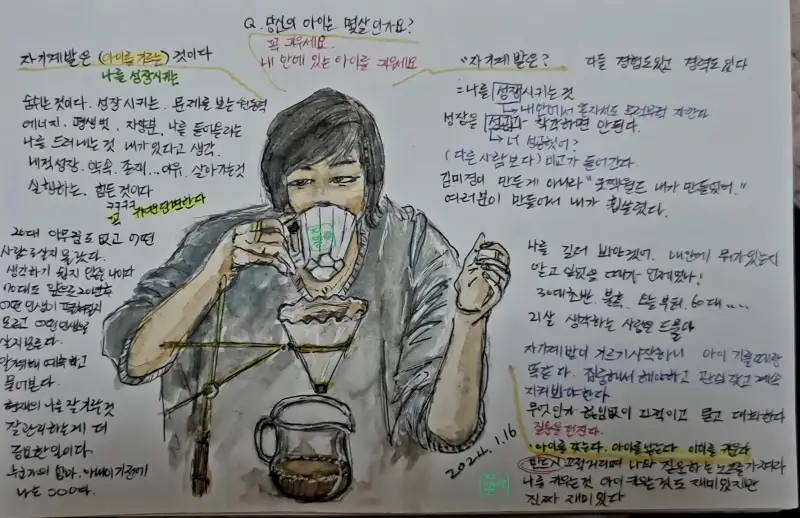 Q. 당신의 아이는 몇살인가요?
꼭 키우세요.
내 안에 있는 아이를 키우세요
자기계발은 (아이를 키우는) 것이다
나를 성장시키는
숨쉬는 것이다. 성장 시키는. 문제를 보는 원동력
에너지. 평생 벗, 자양분, 나를 들어올리는
나를 드러내는 것 내가 있다고 생각.
내적성장. 약속. 존재... 여유, 살아가는 것
실행하는. 힘든 것이다
ㅋㅋㅋㅋ
20대 아무 것도 없고 어떤
사람으로 살지 몰랐다.
생각하기 쉽지 않은 나이다
70대도 앞으로 20년후
어떤 인생이 펼쳐질지
모르고 어떤 인생을
살지 모른다.
물어본다.
현재의 나를 잘 키운 것
잘 관리하는게 더
중요한 일이다.
누군가의 엄마. 아빠이기 전에
나는 OOO다.
"자기계발은?
다들 경험도 있고 경력도 있다
= 나를 성장시키는 것
내 안에서 혼자서도 무럭무럭 자란다
성장을 성공과 착각하면 안된다.
너 성공했어?
(다른 사람보다) 비교가 들어간다.
김미경이 만든게 아니라 "굿짹월드 내가 만들었어."
여러분이 만들어서 내가 휩쓸렸다.
나를 길러 봐야겠어. 내안에 뭐가 있는지
알고 싶었을 때가 언제였나!
30대초반. 불혹. 오늘부터. 60대....
21살 생각하는 사람은 드물다
자기계발이 키우기 시작하니 아이 기를때랑
똑같다. 집중해서 해야하고 관심 갖고 계속
지켜봐야한다
무엇인가 끊임없이 자극이고 묻고 대화한다
질문을 던진다.
· 아이를 갖는다. 아이를 낳는다 아이를 키운다
반드시 끄적거리며 나와 질문하는 노트를 가져라
나를 키우는 것 아이 키우는 것도 재미있지만
진짜 재미있다
2024. 1. 16